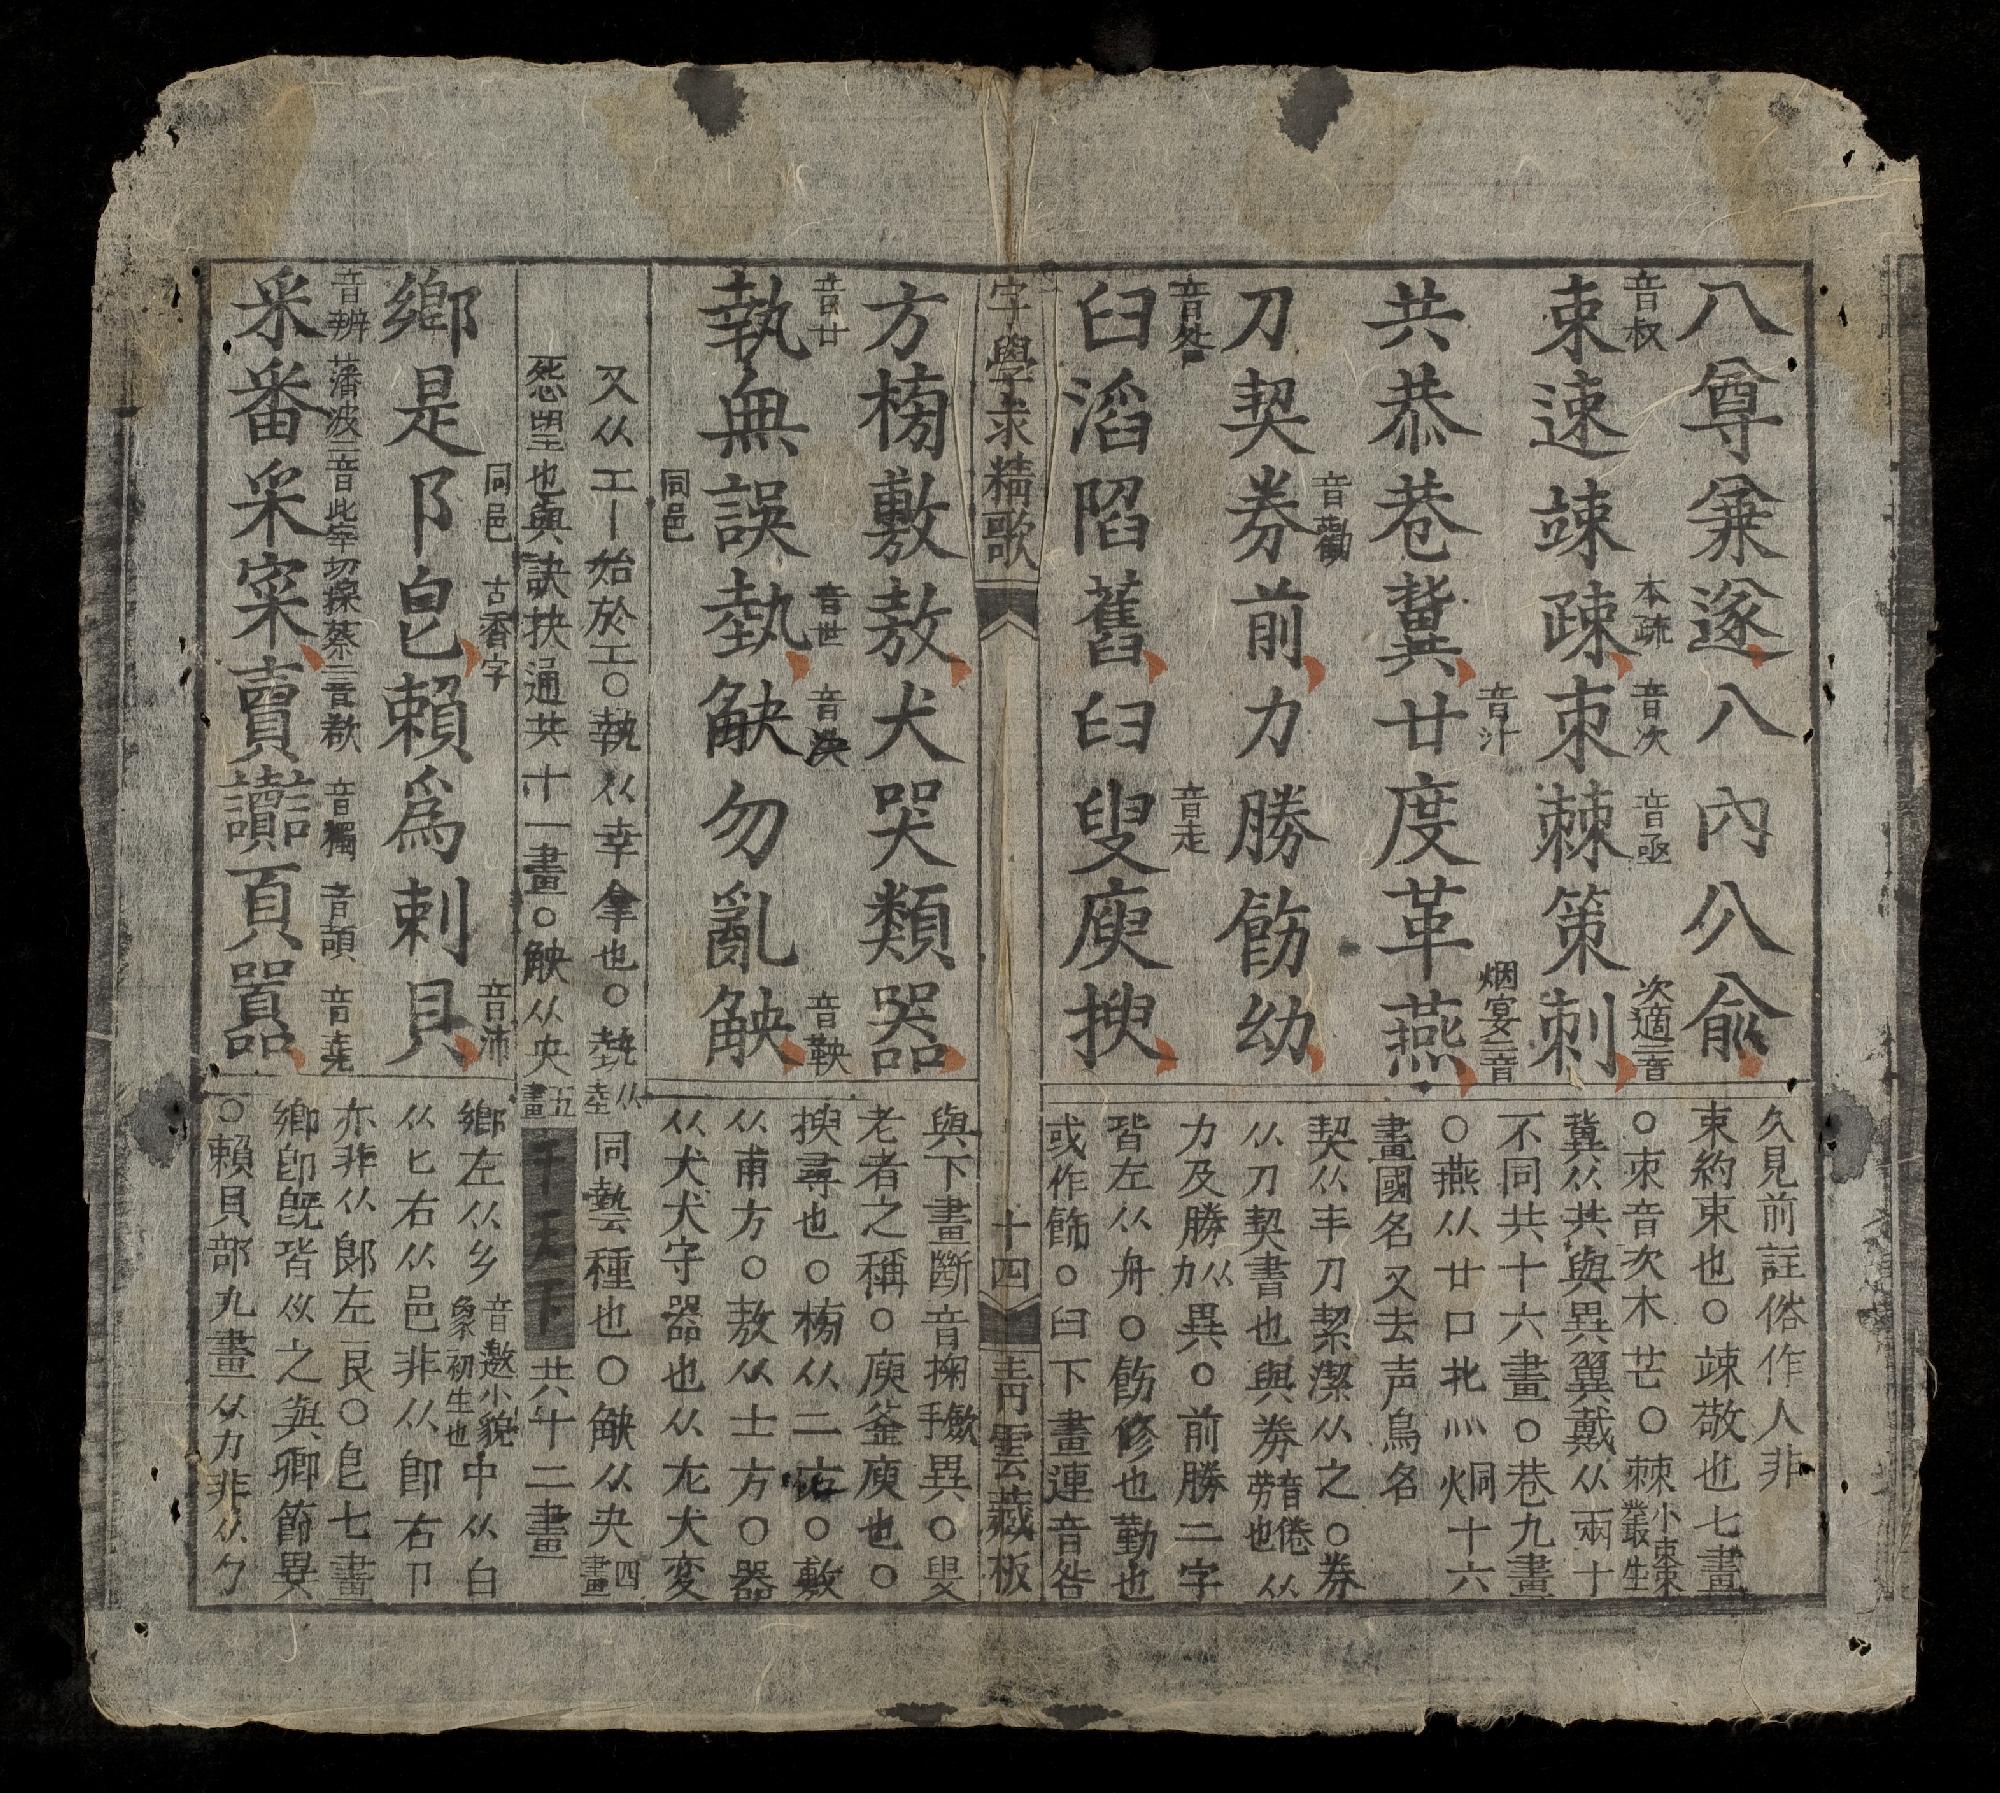 八尊兼遂八內公俞
音叔 本疏 音次 音亟 次適二音
束速竦疎朿棘策刺
共恭巷冀廿度革燕
音汁 烟宴二音
刀契券前力勝飭幼
音勸
臼滔陷舊臼叟庾搜
音咎 音走
久見前註俗作人非
束約束也○竦敬也七畫
○朿音次木芒○棘小束束叢生
冀从共與異翼戴从兩十
不同共十六畫○巷九畫
○燕从廿口北灬同火十六
畫國名又去声鳥名
契从丰刀絜潔从之○券
从刀契書也與劵音倦劳也从
力及勝从力異○前勝二字
皆左从舟○飭修也勤也
或作飾○臼下畫連音咎
字學求精歌
十四
青雲藏板
方榜敷敖犬哭類器
音廿 音世 音决 音鞅
執無誤埶觖勿亂觖
同邑
與下畫斷音掬手斂異○叟
老者之稱○庾釜庾也○
搜尋也○榜从二六○敷
从甫方○敖从士方○器
从犬犬守器也从尤犬变
又从工丨始於工○執从幸拿也○埶从坴同藝種也○觖从夬四畫
怨望也與訣抉通共十一畫○觖从央五畫
千天下
共十二畫
同邑 古香字 音沛
鄉是阝皀賴爲剌貝
音辨 蕃波二音 此宰切 採蔡二音 音獨 音頡 音堯
釆番采寀賣讟頁嚣
鄉左从乡音邀小貌象初生也中从白
从匕右从邑非从卽右卩
亦非从郞左㫐○皀七畫
鄉卽旣皆从之與卿節異
○賴貝部九畫从力非从勹